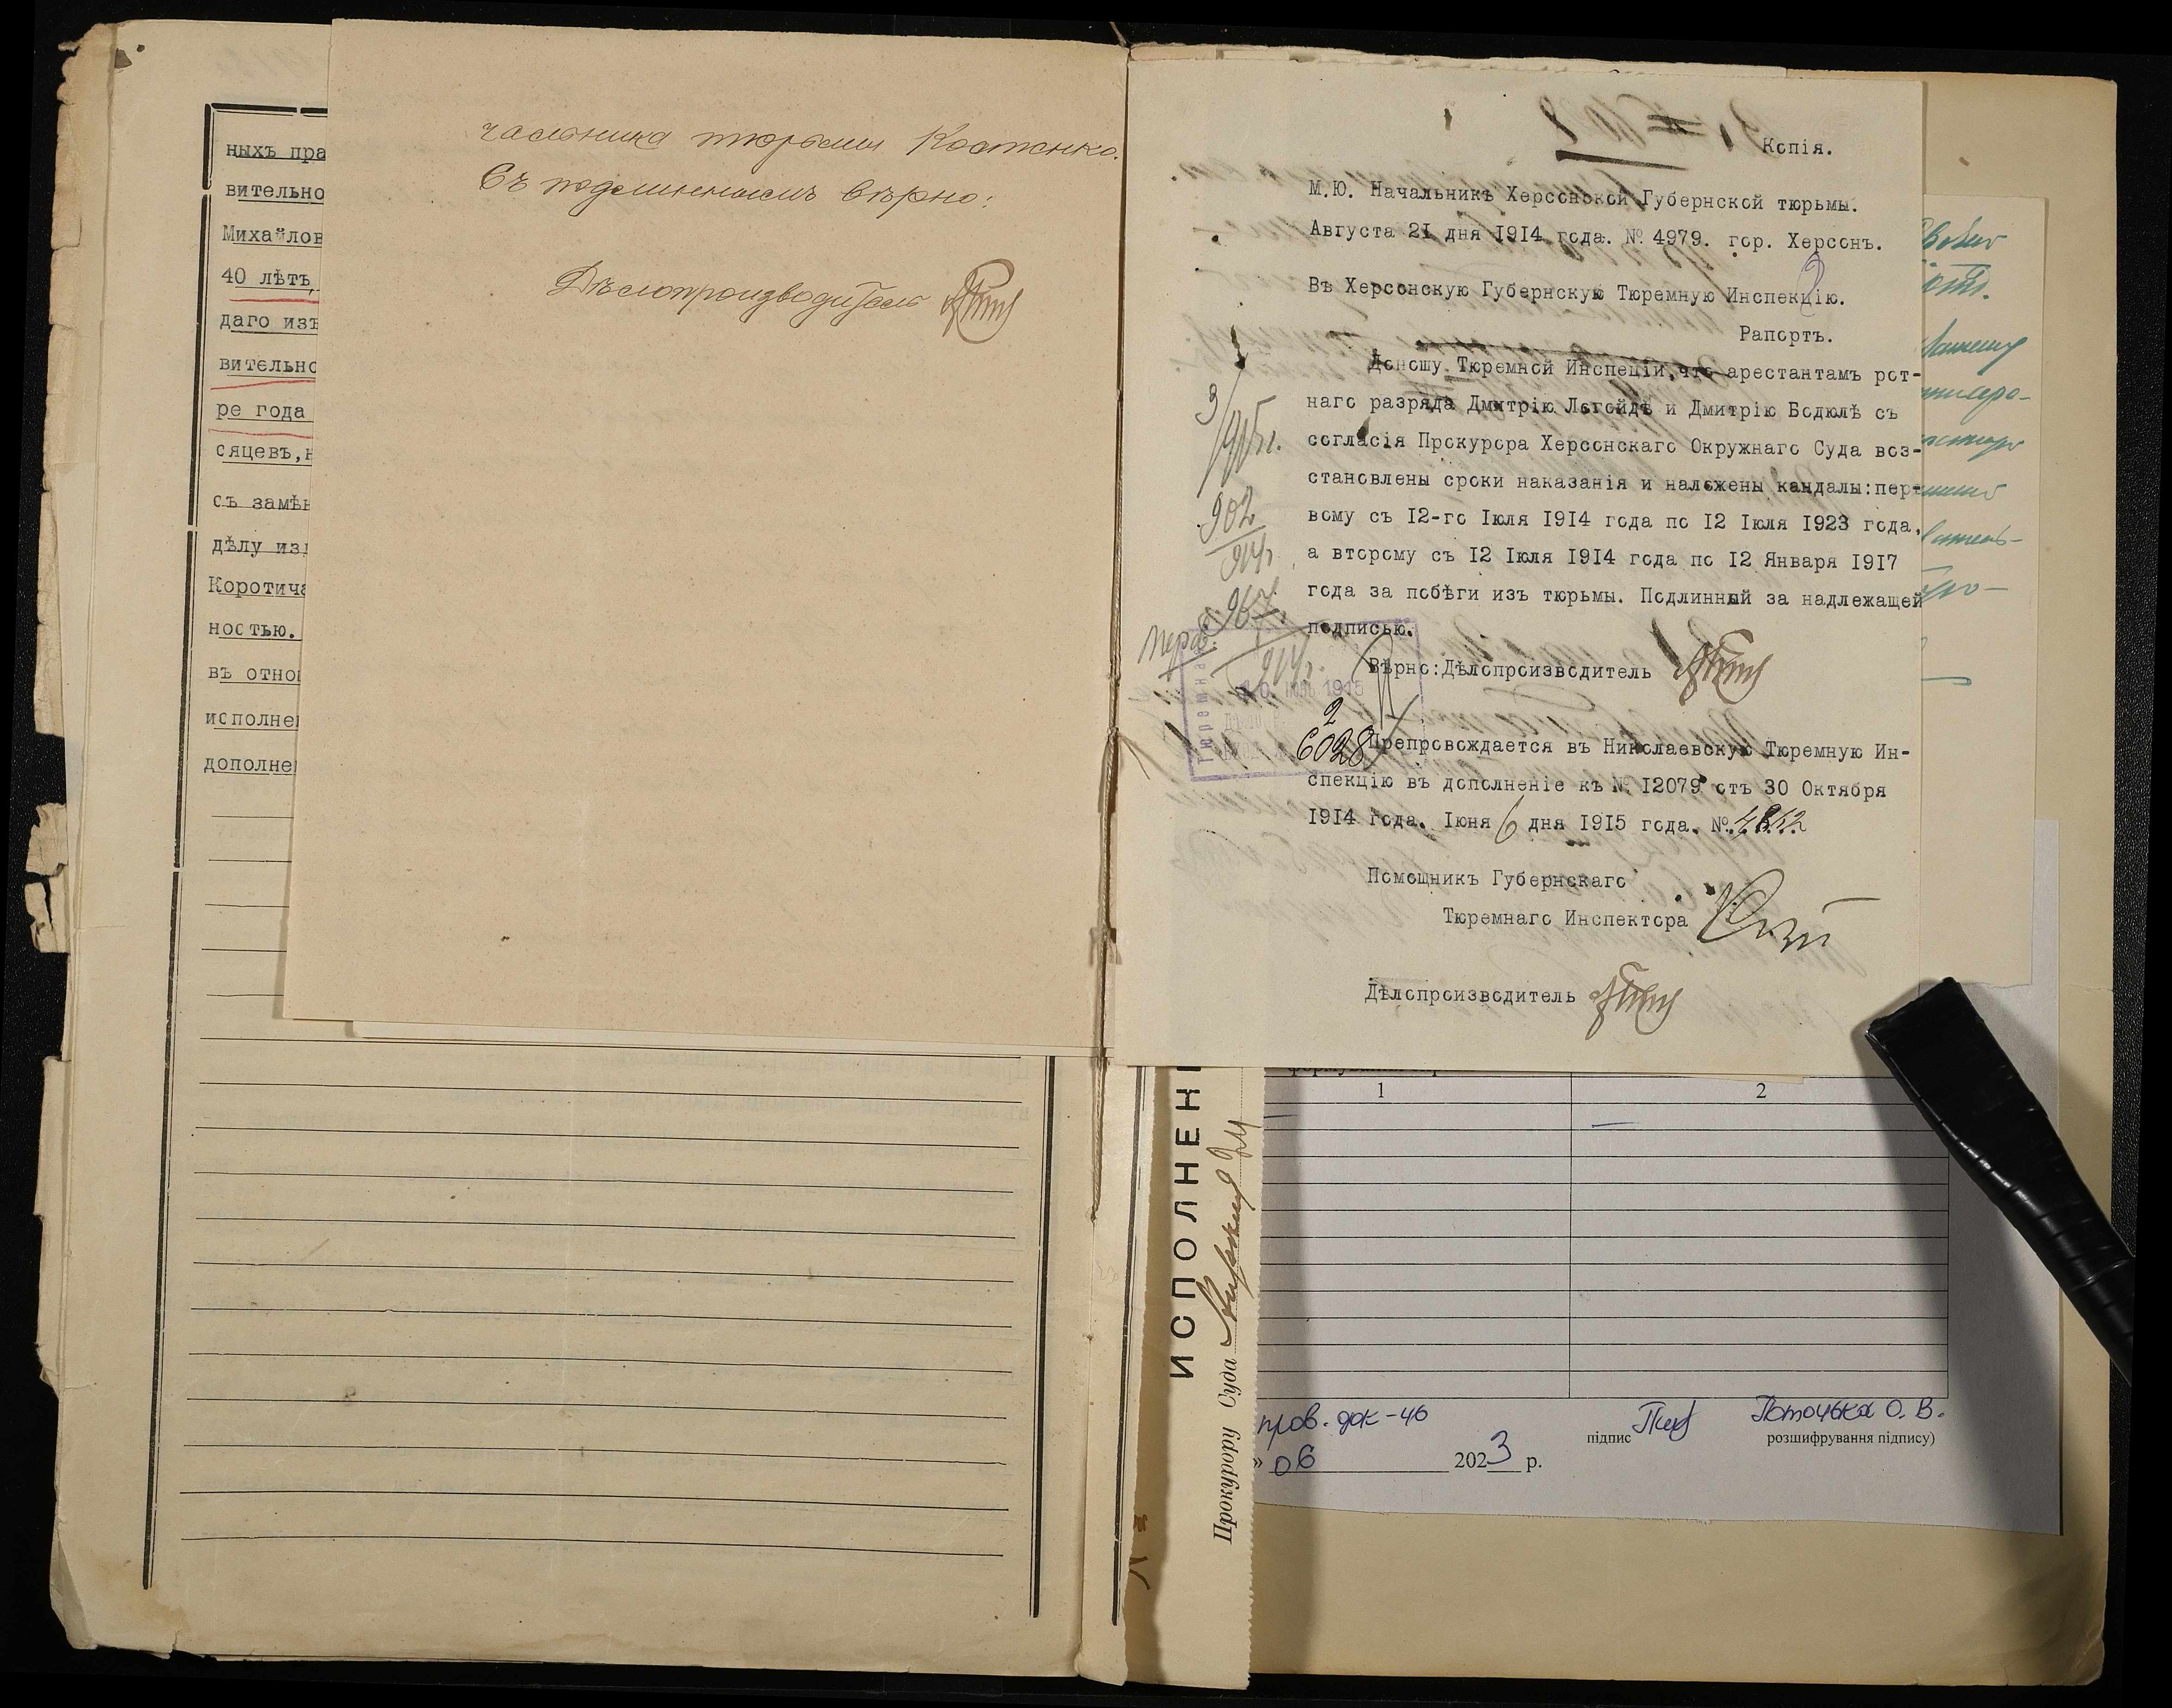 ныхъ пра
вительно
Михайлов
40 лѣтъ,
даго изъ
вительно
ре года
сяцевъ,н
съ замѣн
дѣлу из
Коротича
ностью.
въ отно
исполне
дополне
чальника тюрьмы Костенко.
Съ подлиннымъ вѣрно:
Дѣлопроизводитель
Копія.
М.Ю. Начальникъ Херсонской Губернской тюрьмы.
Августа 21 дня 1914 года. № 4979. гор. Херсонъ.
Въ Херсонскую Губернскую Тюремную Инспекцію.
Рапортъ.
Доношу Тюремной Инспеціи,что арестантамъ рот-
наго разряда Дмитрію Легойдѣ и Дмитрію Бодюлѣ съ
согласія Прокурора Херсонскаго Окружнаго Суда воз-
становлены сроки наказанія и наложены кандалы:пер-
вому съ 12-го Іюля 1914 года по 12 Іюля 1923 года,
а второму съ 12 Іюля 1914 года по 12 Января 1917
года за побѣги изъ тюрьмы. Подлинный за надлежащей
подписью.
Вѣрно:Дѣлопроизводитель
902
914г.
967
914г.
1915
2
6028
Препровождается въ Николаевскую Тюремную Ин-
спекцію въ дополненіе къ № 12079 отъ 30 Октября
1914 года. Іюня 6 дня 1915 года. № 4862
Помощникъ Губернскаго
Тюремнаго Инспектора
Дѣлопроизводитель
ИСПОЛНЕН
Прокурору Суда
1
2
пров. док-46
» 06 2023 р.
підпис
Поточька О. В.
розшифрування підпису)